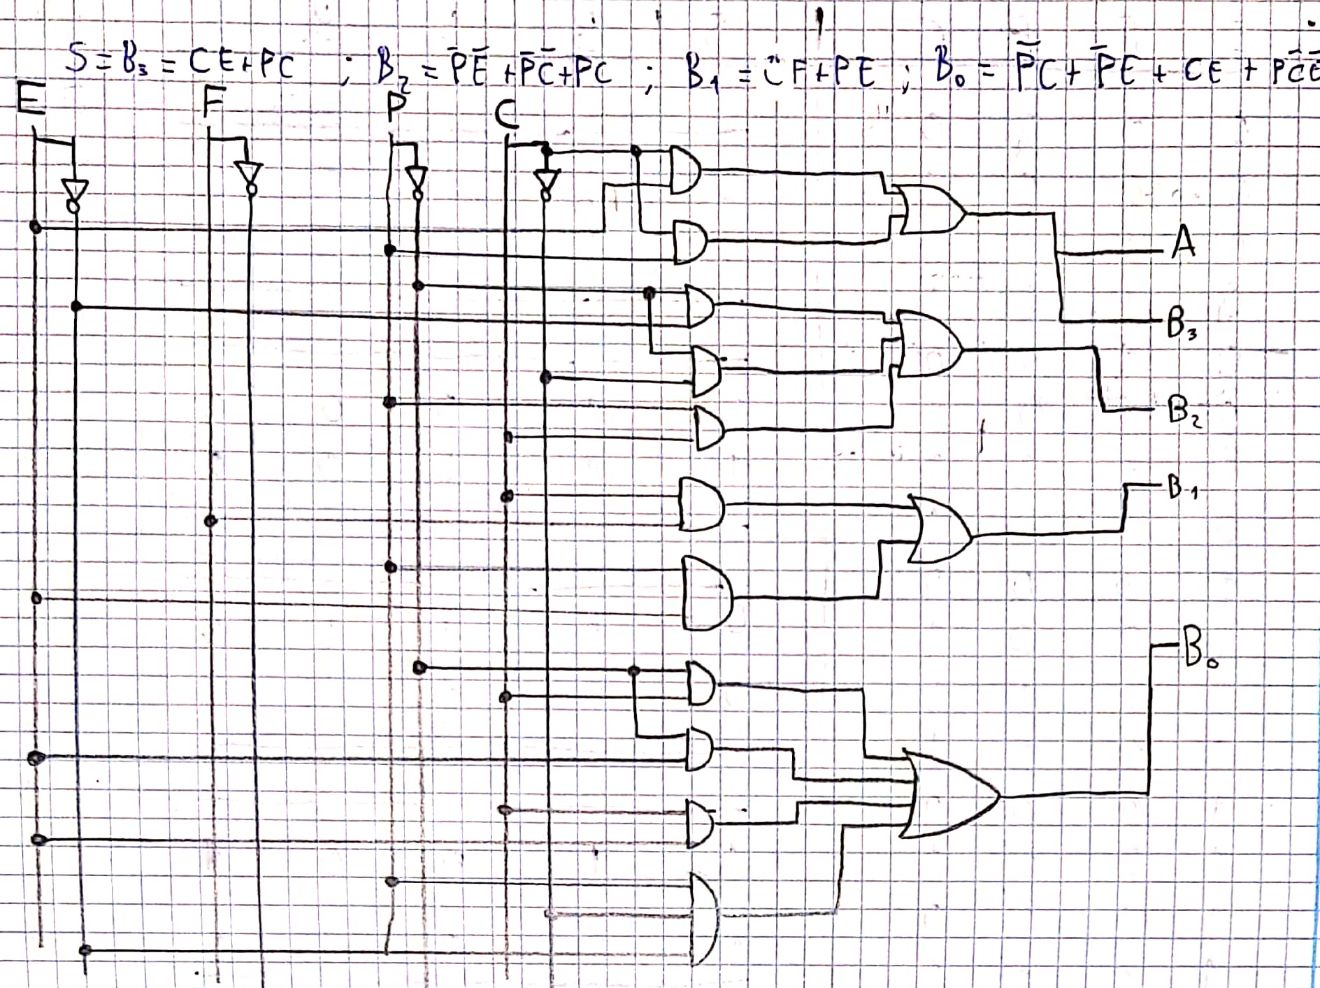 S = B₃ = CE+PC ; B₂ = P̄Ē + P̄C̄ + PC ; B₁ = CF + PE ; B₀ = P̄C + P̄E + CE + PC̄Ē
E F P C
A
B₃
B₂
B₁
B₀